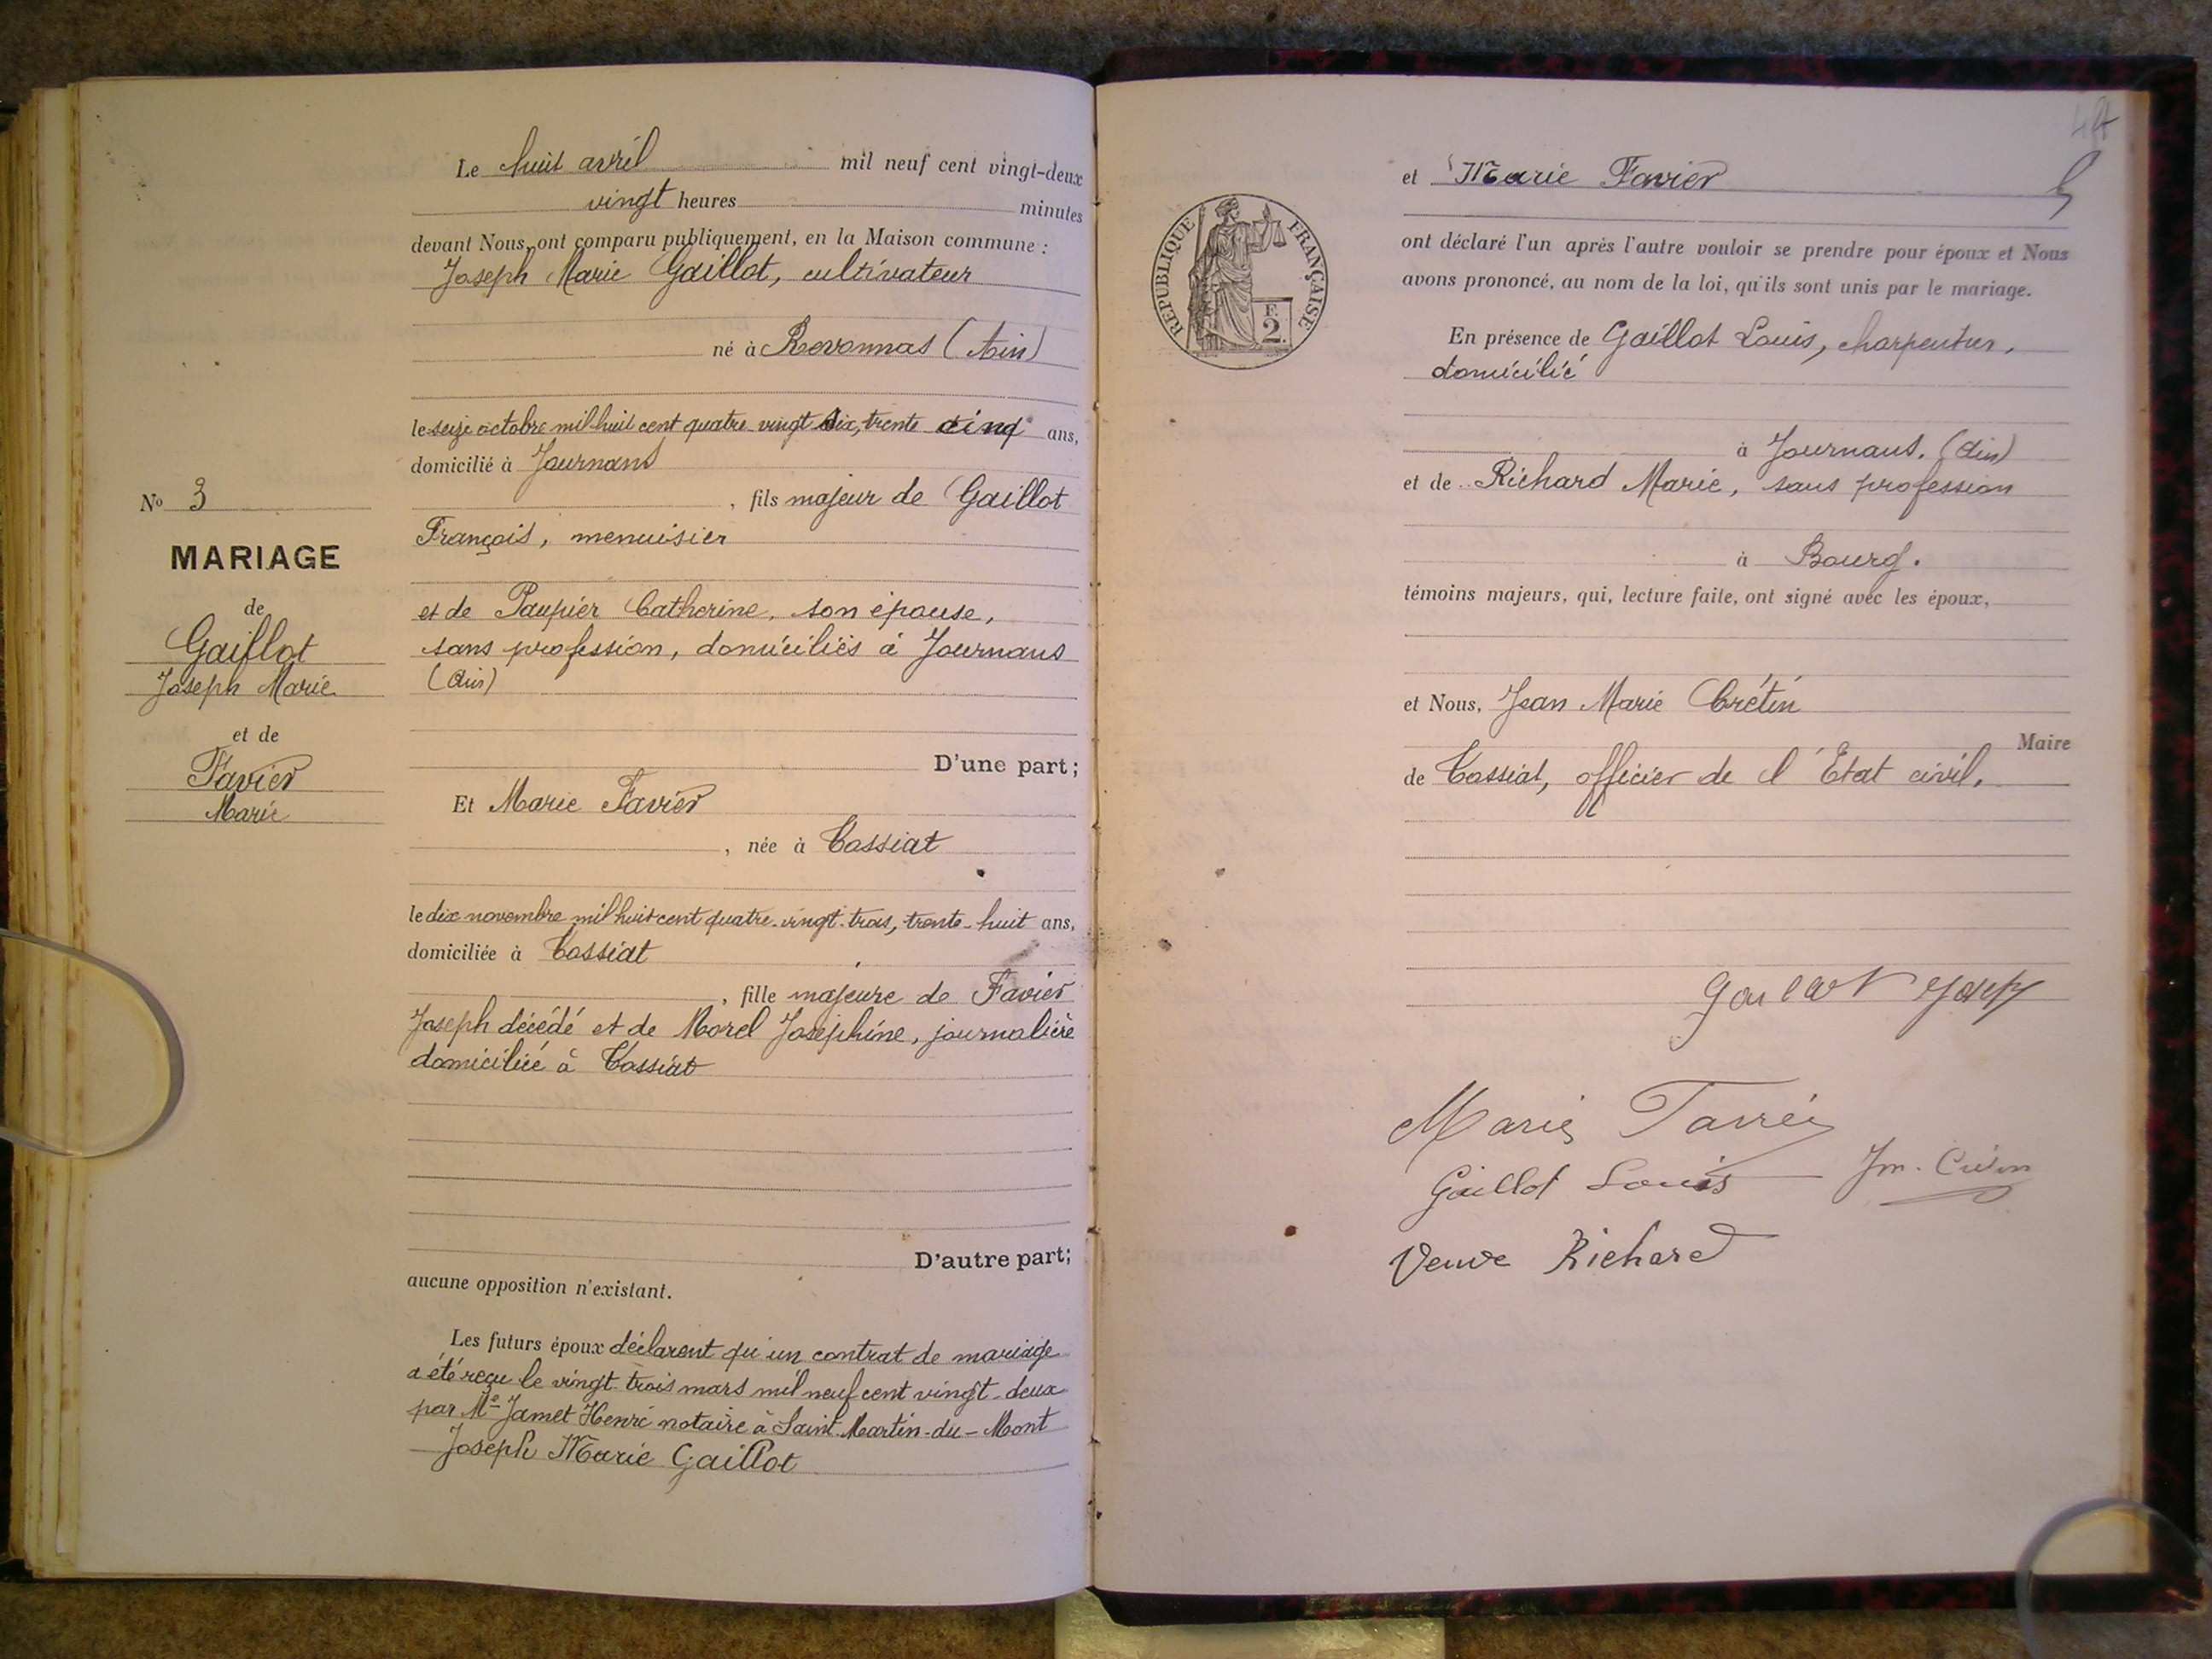 Le huit avril mil neuf cent vingt-deux
vingt heures minutes
devant Nous, ont comparu publiquement, en la Maison commune :
Joseph Marie Gaillot, cultivateur
né à Revonnas (Ain)
le seize octobre mil huit cent quatre-vingt six, trente cinq ans,
domicilié à Journans
, fils majeur de Gaillot
François, menuisier
et de Paupier Catherine, son épouse,
sans profession, domiciliés à Journans
(Ain)
D'une part;
Et Marie Favier
, née à Tossiat
le dix novembre mil huit cent quatre-vingt-trois, trente-huit ans,
domiciliée à Tossiat
, fille majeure de Favier
Joseph décédé et de Morel Joséphine, journalière
domiciliée à Tossiat
D'autre part;
aucune opposition n'existant.
Les futurs époux déclarent qu'un contrat de mariage
a été reçu le vingt-trois mars mil neuf cent vingt-deux
par Me Jamet Henri notaire à Saint-Martin-du-Mont
Joseph Marie Gaillot
No 3
MARIAGE
de
Gaillot
Joseph Marie
et de
Favier
Marie
RÉPUBLIQUE FRANÇAISE
F.
2.
et Marie Favier
ont déclaré l'un après l'autre vouloir se prendre pour époux et Nous
avons prononcé, au nom de la loi, qu'ils sont unis par le mariage.
En présence de Gaillot Louis, charpentier,
domicilié
à Journans. (Ain)
et de Richard Marie, sans profession
à Bourg.
témoins majeurs, qui, lecture faite, ont signé avec les époux,
et Nous, Jean Marie Crétin
Maire
de Tossiat, officier de l'Etat civil.
Gaillot Joseph
Marie Favier
Gaillot Louis
Jm. Crétin
Veuve Richard